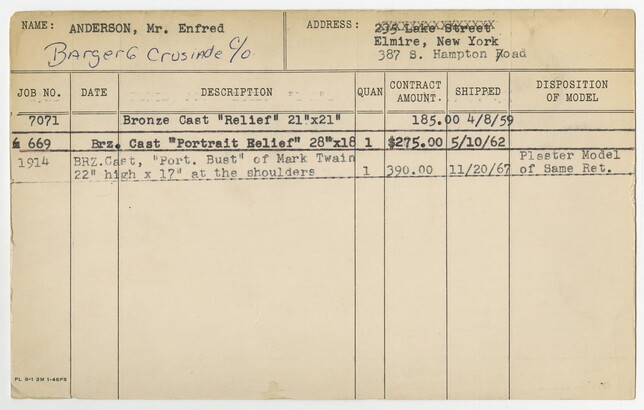 NAME: ANDERSON, Mr. Enfred ADDRESS: 235 Lake Street
Elmire, New York
387 S. Hampton Road
C/O
JOB NO. DATE DESCRIPTION QUAN CONTRACT AMOUNT. SHIPPED DISPOSITION OF MODEL
7071 Bronze Cast "Relief" 21"x21" 185.00 4/8/59
669 Brz. Cast "Portrait Relief" 28"x18 1 $275.00 5/10/62
1914 BRZ.Cast, "Port. Bust" of Mark Twain Plaster Model
22" high x 17" at the shoulders 1 390.00 11/20/67 of Same Ret.